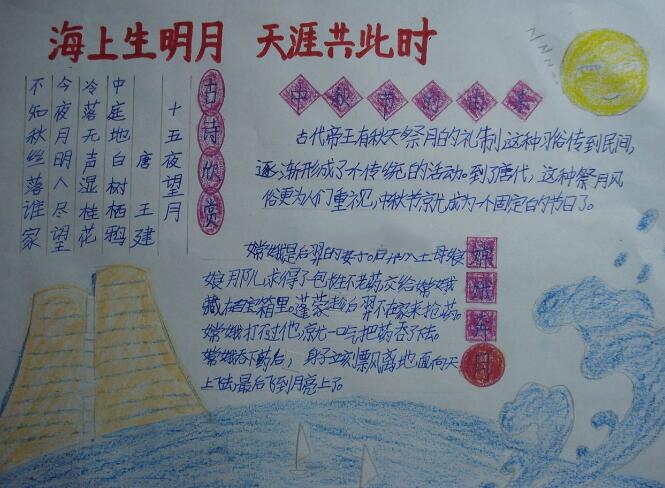 海上生明月 天涯共此时
古诗欣赏
十五夜望月
唐 王建
中庭地白树栖鸦
冷落无声湿桂花
今夜月明人尽望
不知秋丝落谁家
中秋节的由来
古代帝王有秋天祭月的礼制,这种习俗传到民间,
逐渐形成了个传统的活动。到了唐代,这种祭月风
俗更为人们重视,中秋节就成为一个固定的节日了。
嫦娥奔月
嫦娥是后羿的妻子。后羿从王母娘
娘月那儿求得了包性不老药交给嫦娥
藏在百宝箱里。蓬蒙趁后羿不在家来抢药。
嫦娥打不过他,就一口气把药吞了下去。
嫦娥吞下药后,身子立刻飘风离地面向天
上飞去,最后飞到月亮上了。
NNN